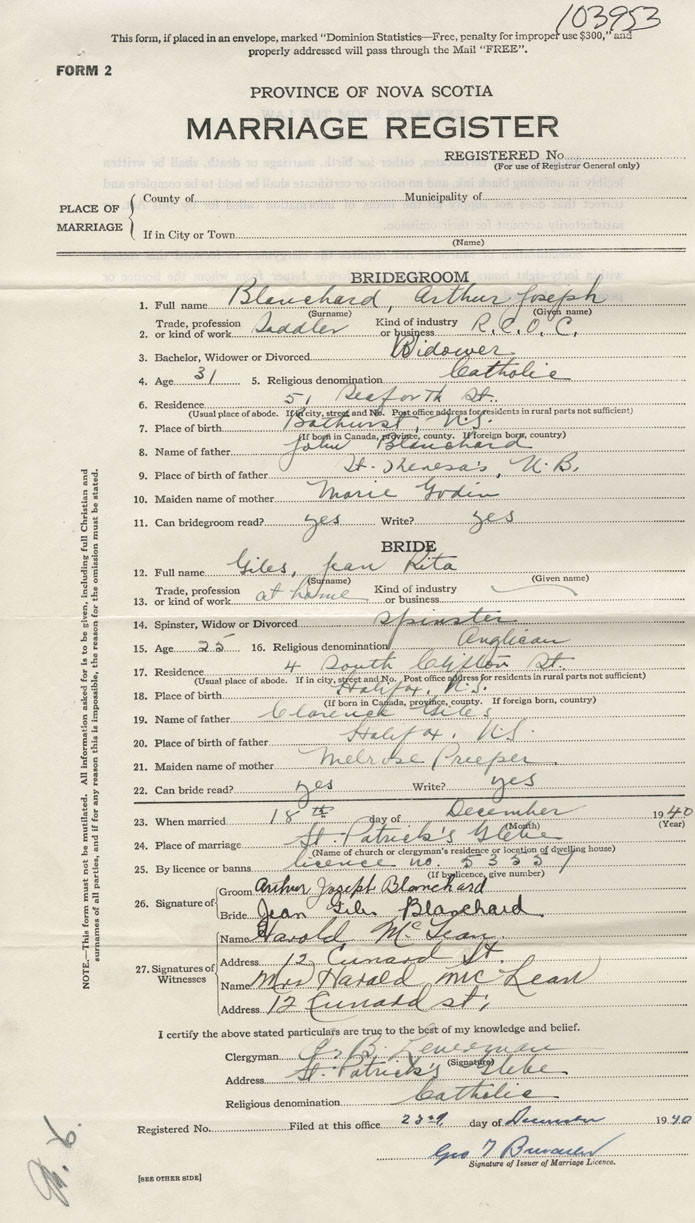 103953
This form, if placed in an envelope, marked “Dominion Statistics—Free, penalty for improper use $300,” and
properly addressed will pass through the Mail “FREE”.
FORM 2
PROVINCE OF NOVA SCOTIA
MARRIAGE REGISTER
REGISTERED No.
(For use of Registrar General only)
PLACE OF MARRIAGE
County of Municipality of
If in City or Town
(Name)
BRIDEGROOM
1. Full name Blanchard, Arthur Joseph
(Surname) (Given name)
2. Trade, profession or kind of work Saddler Kind of industry or business R.C.O.C.
3. Bachelor, Widower or Divorced Widower
4. Age 31 5. Religious denomination Catholic
6. Residence 51 Seaforth St.
(Usual place of abode. If in city, street and No. Post office address for residents in rural parts not sufficient)
7. Place of birth Bathurst, N.S.
(If born in Canada, province, county. If foreign born, country)
8. Name of father John Blanchard
9. Place of birth of father St. Theresa's, N.B.
10. Maiden name of mother Marie Godin
11. Can bridegroom read? yes Write? yes
BRIDE
12. Full name Giles, Jean Rita
(Surname) (Given name)
13. Trade, profession or kind of work at home Kind of industry or business
14. Spinster, Widow or Divorced spinster
15. Age 25 16. Religious denomination Anglican
17. Residence 4 South Clifton St.
(Usual place of abode. If in city, street and No. Post office address for residents in rural parts not sufficient)
18. Place of birth Halifax, N.S.
(If born in Canada, province, county. If foreign born, country)
19. Name of father Clarence Giles
20. Place of birth of father Halifax, N.S.
21. Maiden name of mother Melrose Preeper
22. Can bride read? yes Write? yes
23. When married 18th day of December 1940
(Month) (Year)
24. Place of marriage St. Patrick's Glebe
(Name of church or clergyman's residence or location of dwelling house)
25. By licence or banns licence no. 53357
(If by licence, give number)
26. Signature of
Groom Arthur Joseph Blanchard
Bride Jean Giles Blanchard
27. Signatures of Witnesses
Name Harold McLean
Address 12 Cunard St.
Name Mrs Harald McLean
Address 12 Cunard st;
I certify the above stated particulars are true to the best of my knowledge and belief.
Clergyman
(Signature)
Address St. Patrick's Glebe
Religious denomination Catholic
Registered No. Filed at this office day of December 1940
Geo T
Signature of Issuer of Marriage Licence.
[SEE OTHER SIDE]
NOTE.—This form must not be mutilated. All information asked for is to be given, including full Christian and
surnames of all parties, and if for any reason this is impossible, the reason for the omission must be stated.